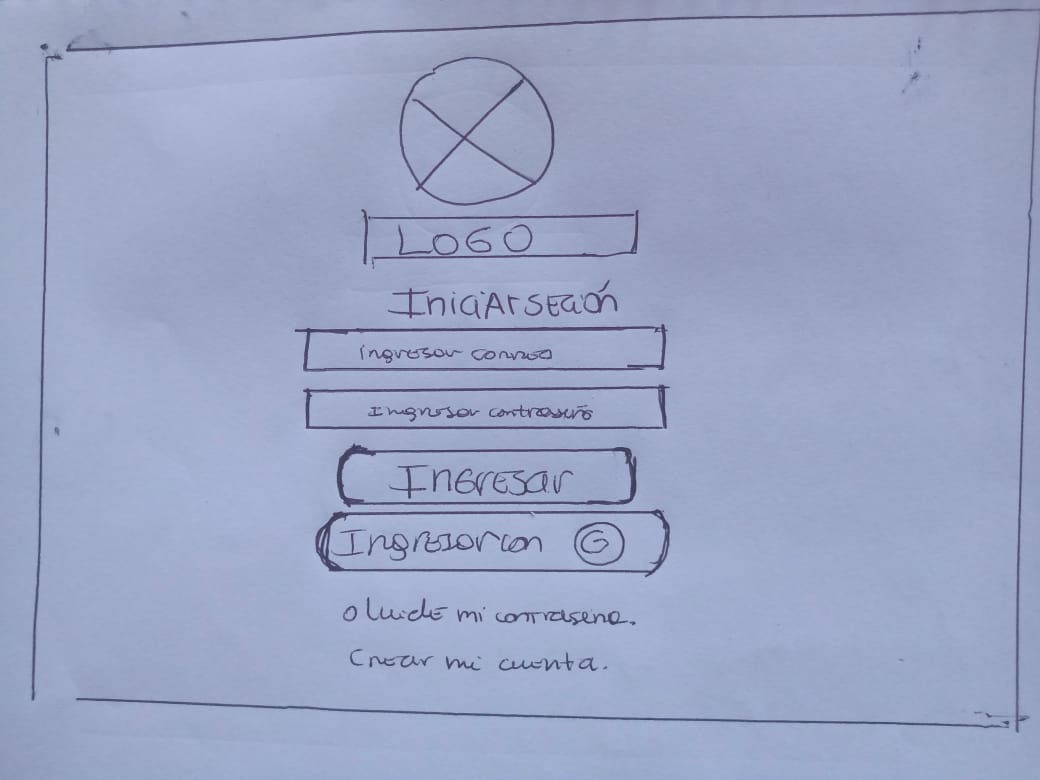 LOGO
Iniciar seción
ingresar correo
Ingresar contraseña
Ingresar
Ingresar con G
olvide mi contraseña.
Crear mi cuenta.